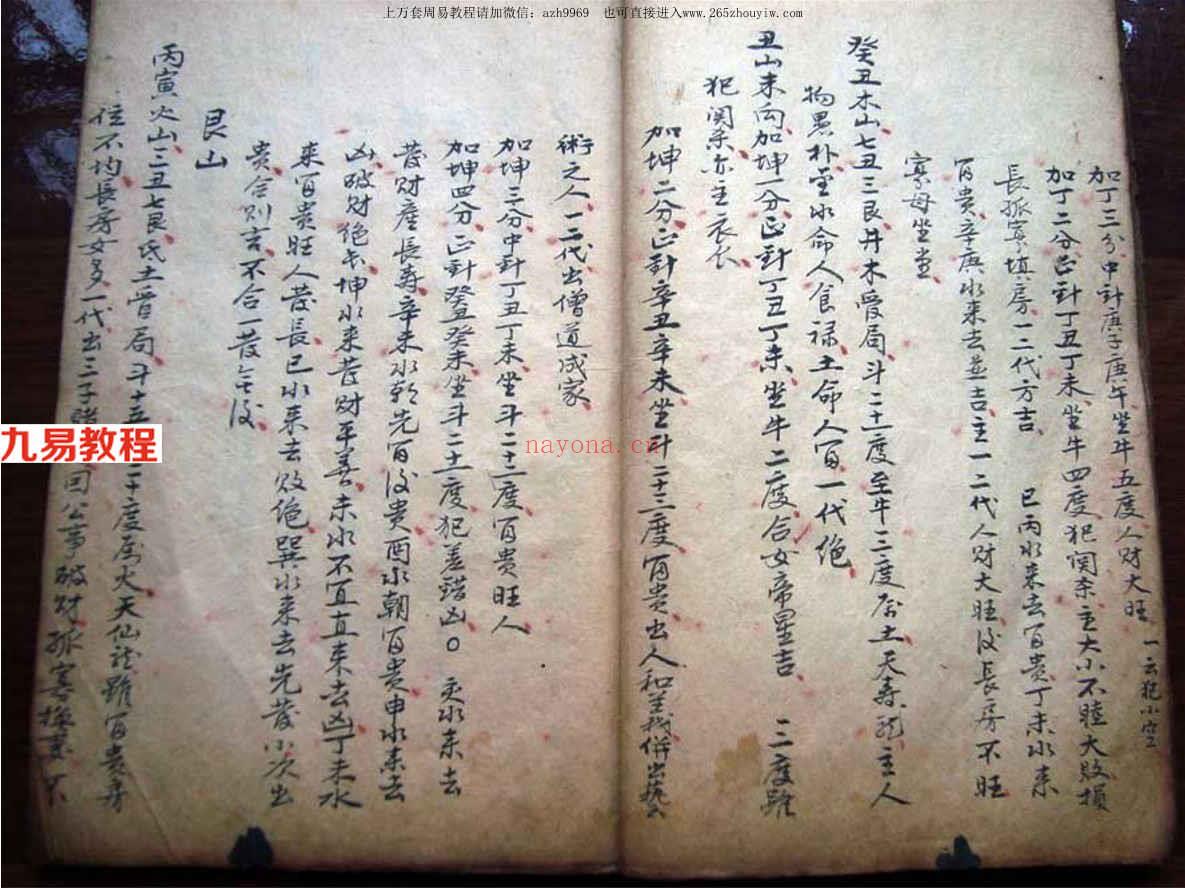 上万套周易教程请加微信：azh9969 也可直接进入www.265zhouyiw.com
加丁三分中針庚子庚午坐牛五度人財大旺 一云犯小空
加丁二分正針丁丑丁未坐牛四度犯関杀主大小不睦大敗損
長孤寡填房一二代方吉 巳丙水来去百贵丁未水来
百贵辛庚水来去並吉主一二代人財大旺後長房不旺
寡母坐堂
癸丑木山七丑三艮井木受局斗二十一度至牛三度属土天寿龍主人
物愚朴至水命人食禄土命人百一代绝
丑山未向加坤一分正針丁丑丁未坐牛二度合女帝星吉 二度雖
犯関杀亦主衣长
加坤二分正針辛丑辛未坐斗二十三度百贵出人和並我併出藝
術之人一二代出僧道成家
加坤三分中針丁丑丁未坐斗二十二度百贵旺人
加坤四分正針癸丑癸未坐斗二十一度犯差錯凶〇 来去
發財産長寿辛来水朝先百後贵酉水朝百贵申水来去
凶破財绝坤水来發財年善未水不宜直来去凶丁未水
来百贵旺人發長巳水来去敗绝巽水来去先發小次出
贵合則吉不合一發
艮山
丙寅火山三丑七艮氐土晉局斗十五二十度属火天仙龍雖百贵房
位不均長房女多一代出三子 回公事破財孤寡 不
九易教程
nayona.cn